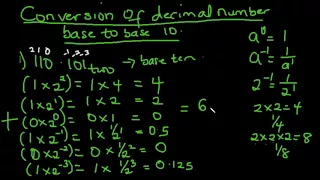 Conversion of decimal number
base to base 10.
2 1 0 -1 -2 -3
1) 110 . 101 two → base ten
(1×2²) = 1 × 4 = 4
(1×2¹) = 1 × 2 = 2
+ (0×2⁰) = 0 × 1 = 0
(1×2⁻¹) = 1 × 1/2¹ = 0.5
(0×2⁻²) = 0 × 1/2² = 0
(1×2⁻³) = 1 × 1/2³ = 0.125
= 6
a⁰ = 1
a⁻¹ = 1/a¹
2⁻¹ = 1/2¹
2×2 = 4
1/4
2×2×2 = 8
1/8